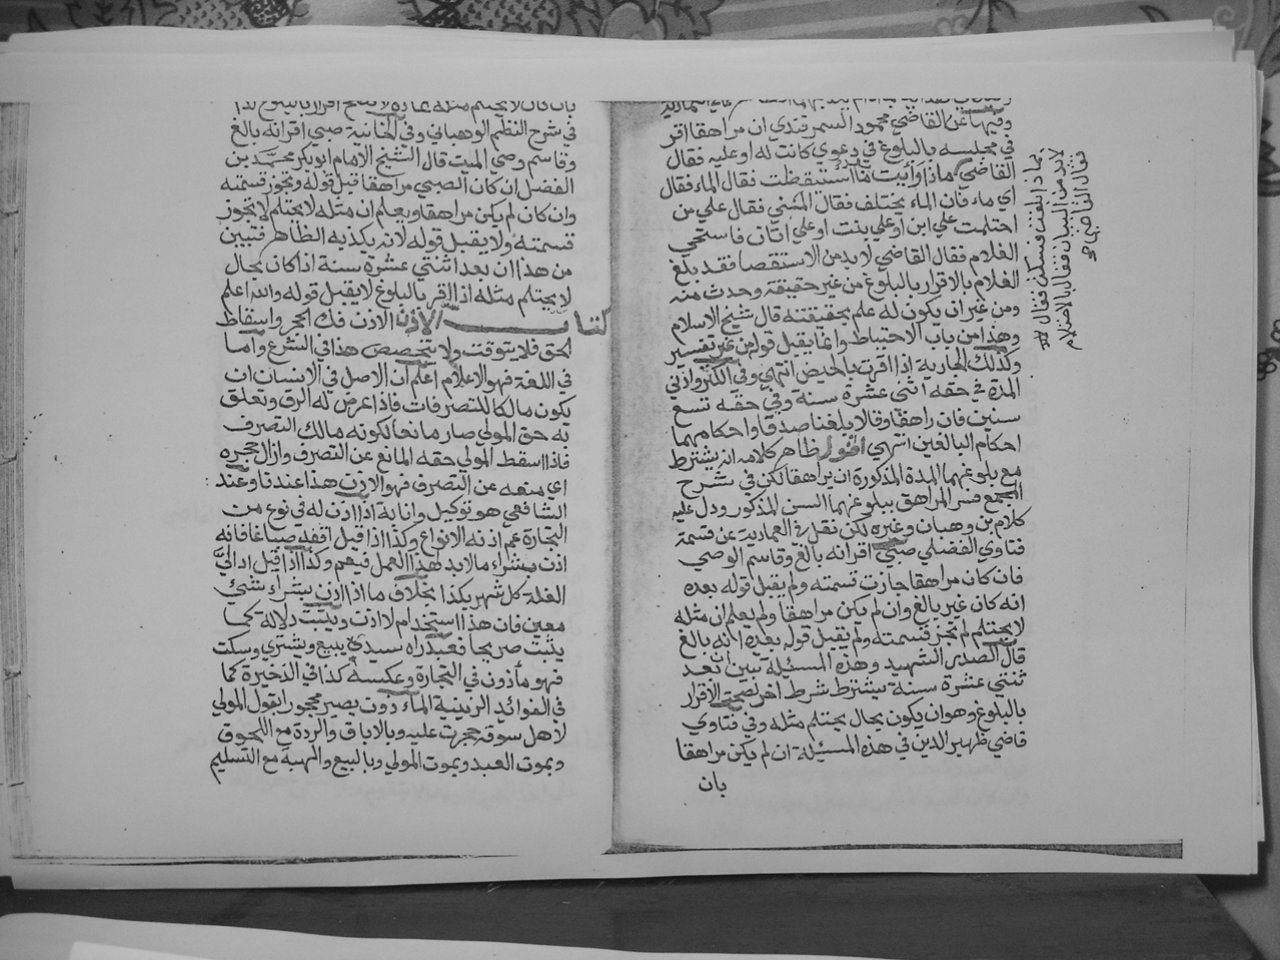 وفيها عن القاضي محمود السمرقندي ان مراهقا اقر
في مجلسه بالبلوغ في دعوي كانت له او عليه فقال
القاضي بماذا وأيت فقال استيقظت فقال الماء فقال
اي ماء فان الماء يختلف فقال المني فقال علي من
احتلمت علي ابن او علي بنت او علي اتان فاستحي
الغلام فقال القاضي لا بد من الاستقصا فقد بلغ
الغلام بالاقرار بالبلوغ من غير حقيقة وحدث منه
ومن غير ان يكون له علم بحقيقته قال شيخ الاسلام
وهذا من باب الاحتياط وانما يقبل قوله من غير تفسير
وكذلك الجارية اذا اقرت بالحيض انتهي وفي الكنز وادني
المدة في حقه اثني عشرة سنة وفي حقه تسع
سنين فان راهقا وقالا بلغنا صدقا واحكامهما
احكام البالغين انتهي اقول ظاهر كلامه انه يشترط
مع بلوغهما المدة المذكورة ان يراهقا لكن في شرح
المجمع فسر المراهق ببلوغهما السن المذكور ودل عليه
كلام بن وهبان وغيره لكن نقل في العمادية عن قسمة
فتاوي الفضلي صبي اقر انه بالغ وقاسم الوصي
فان كان مراهقا جازت قسمته ولم يقبل قوله بعده
انه كان غير بالغ وان لم يكن مراهقا ولم يعلم ان مثله
لا يحتلم لم تجز قسمته ولم يقبل قوله بعده انه بالغ
قال الصدر الشهيد وهذه المسئلة تبين ان بعد
ثنتي عشرة سنة يشترط شرط اخر لصحة الاقرار
بالبلوغ وهو ان يكون بحال يحتلم مثله وفي فتاوي
قاضي ظهير الدين في هذه المسئلة ان لم يكن مراهقا
بان
بماذا بلغت فسكت فقال
لا بد من البيان فقال بالاحتلام
فقال القاضي
بان كان لا يحتلم مثله عادة لا يصح اقراره بالبلوغ كذا
في شرح النظم الوهباني وفي الخانية صبي اقر انه بالغ
وقاسم وصي الميت قال الشيخ الامام ابو بكر محمد بن
الفضل ان كان الصبي مراهقا قبل قوله وتجوز قسمته
وان كان لم يكن مراهقا ويعلم ان مثله لا يحتلم لا تجوز
قسمته ولا يقبل قوله لانه يكذبه الظاهر فتبين
من هذا ان بعد اثنتي عشرة سنة اذا كان بحال
لا يحتلم مثله اذا اقر بالبلوغ لا يقبل قوله والله اعلم
كتاب الاذن الاذن فك الحجر واسقاط
الحق فلا يتوقت ولا يتخصص هذا في الشرع واما
في اللغة فهو الاعلام اعلم ان الاصل في الانسان ان
يكون مالكا للتصرفات فاذا عرض له الرق وتعلق
به حق المولي صار مانعا لكونه مالك التصرف
فاذا اسقط المولي حقه المانع عن التصرف وازال حجره
اي منعه عن التصرف فهو الاذن هذا عندنا وعند
الشافعي هو توكيل وانابة اذا اذن له في نوع من
التجارة عم اذنه الانواع وكذا اذا قيل اقعد صباغا فانه
اذن بشراء ما لا بد لهذا العمل فيهم وكذا اذا قيل اد الي
الغلة كل شهر بكذا بخلاف ما اذا اذن بشراء شيئ
معين فان هذا استخدام لا اذن ويثبت دلالة كما
يثبت صريحا فعبد راه سيده يبيع ويشتري وسكت
فهو مأذون في التجارة وعكسه كذا في الذخيرة كما
في الفوائد الزينية الماءذون يصير محجورا بقول المولي
لاهل سوقه حجرت عليه وبالاباق والردة مع اللحوق
وبموت العبد وبموت المولي وبالبيع والهبة مع التسليم